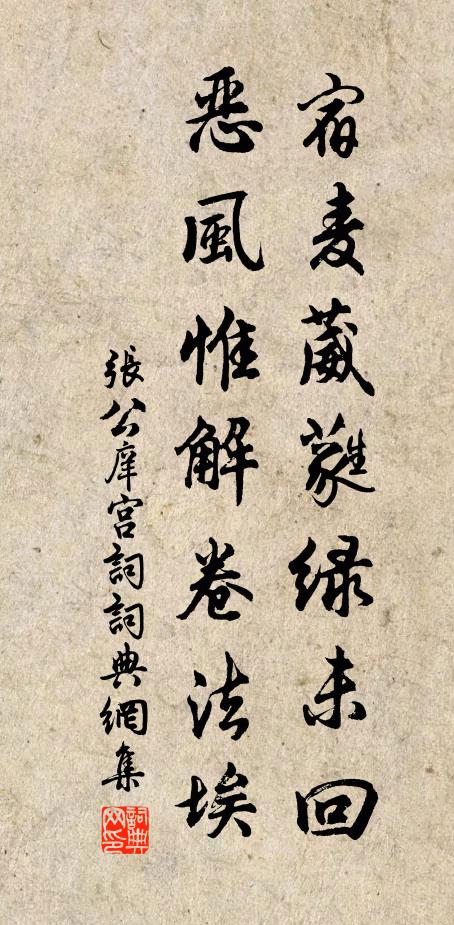 宿麦葳蕤绿未回
恶風惟解卷法埃
張公庠宫詞詞典網集
詞典網印